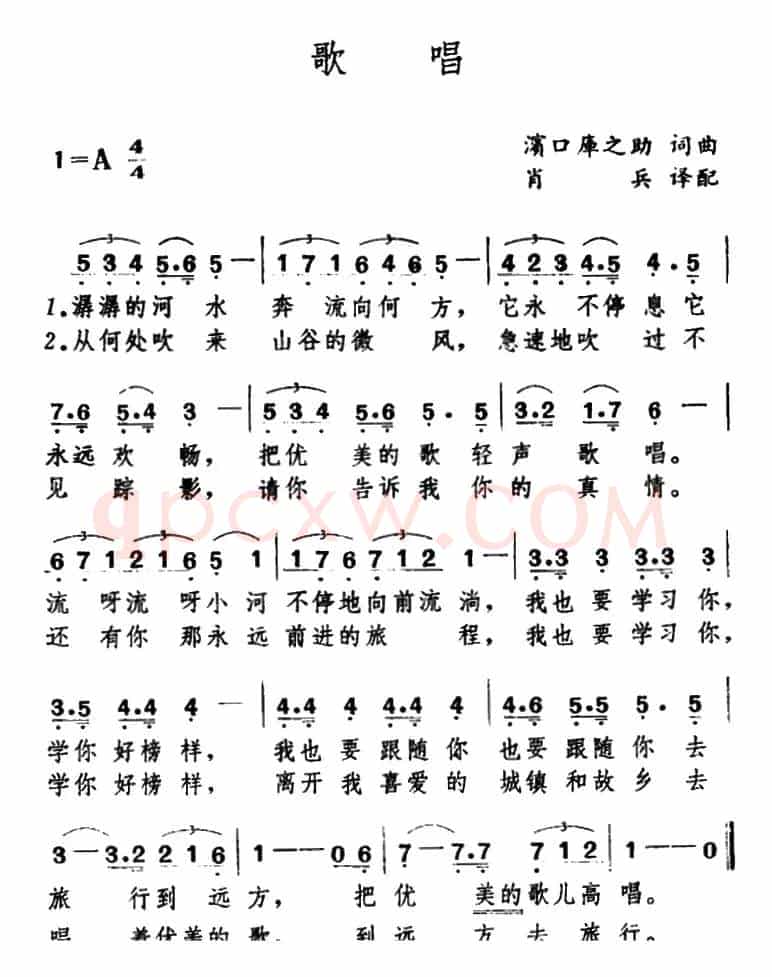 歌 唱
1=A 4/4
濱口庫之助 词曲
肖 兵 译配
5 3 4 5.6 5 — | 1 7 1 6 4 6 5 — | 4 2 3 4.5 4.5 |
1.潺潺的河 水 奔 流向何 方，它永 不停息它
2.从何处吹 来 山谷的微 风，急速地吹 过不
7.6 5.4 3 — | 5 3 4 5.6 5.5 | 3.2 1.7 6 — |
永远欢 畅，把优 美的歌轻声歌 唱。
见 踪 影，请你 告诉我你的真 情。
6 7 1 2 1 6 5 1 | 1 7 6 7 1 2 1 — | 3.3 3 3.3 3 |
流 呀流 呀小河 不停地向前流淌，我也要学习你，
还 有你 那永远 前进的旅 程，我也要学习你，
3.5 4.4 4 — | 4.4 4 4.4 4 | 4.6 5.5 5.5 |
学你好榜样， 我也要跟随你 也要跟随你去
学你好榜样， 离开我喜爱的 城镇和故乡去
3 — 3.2 2 1 6 | 1 — — 0 6 | 7 — 7.7 7 1 2 | 1 — — 0 ‖
旅 行到 远方， 把优 美的歌儿高唱。
qpcxw.COM